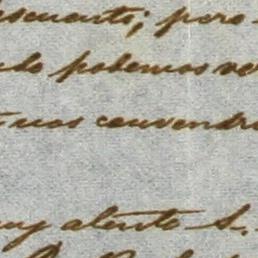 descuento; pero
do podemos ve
nos convendr
uy atento S.